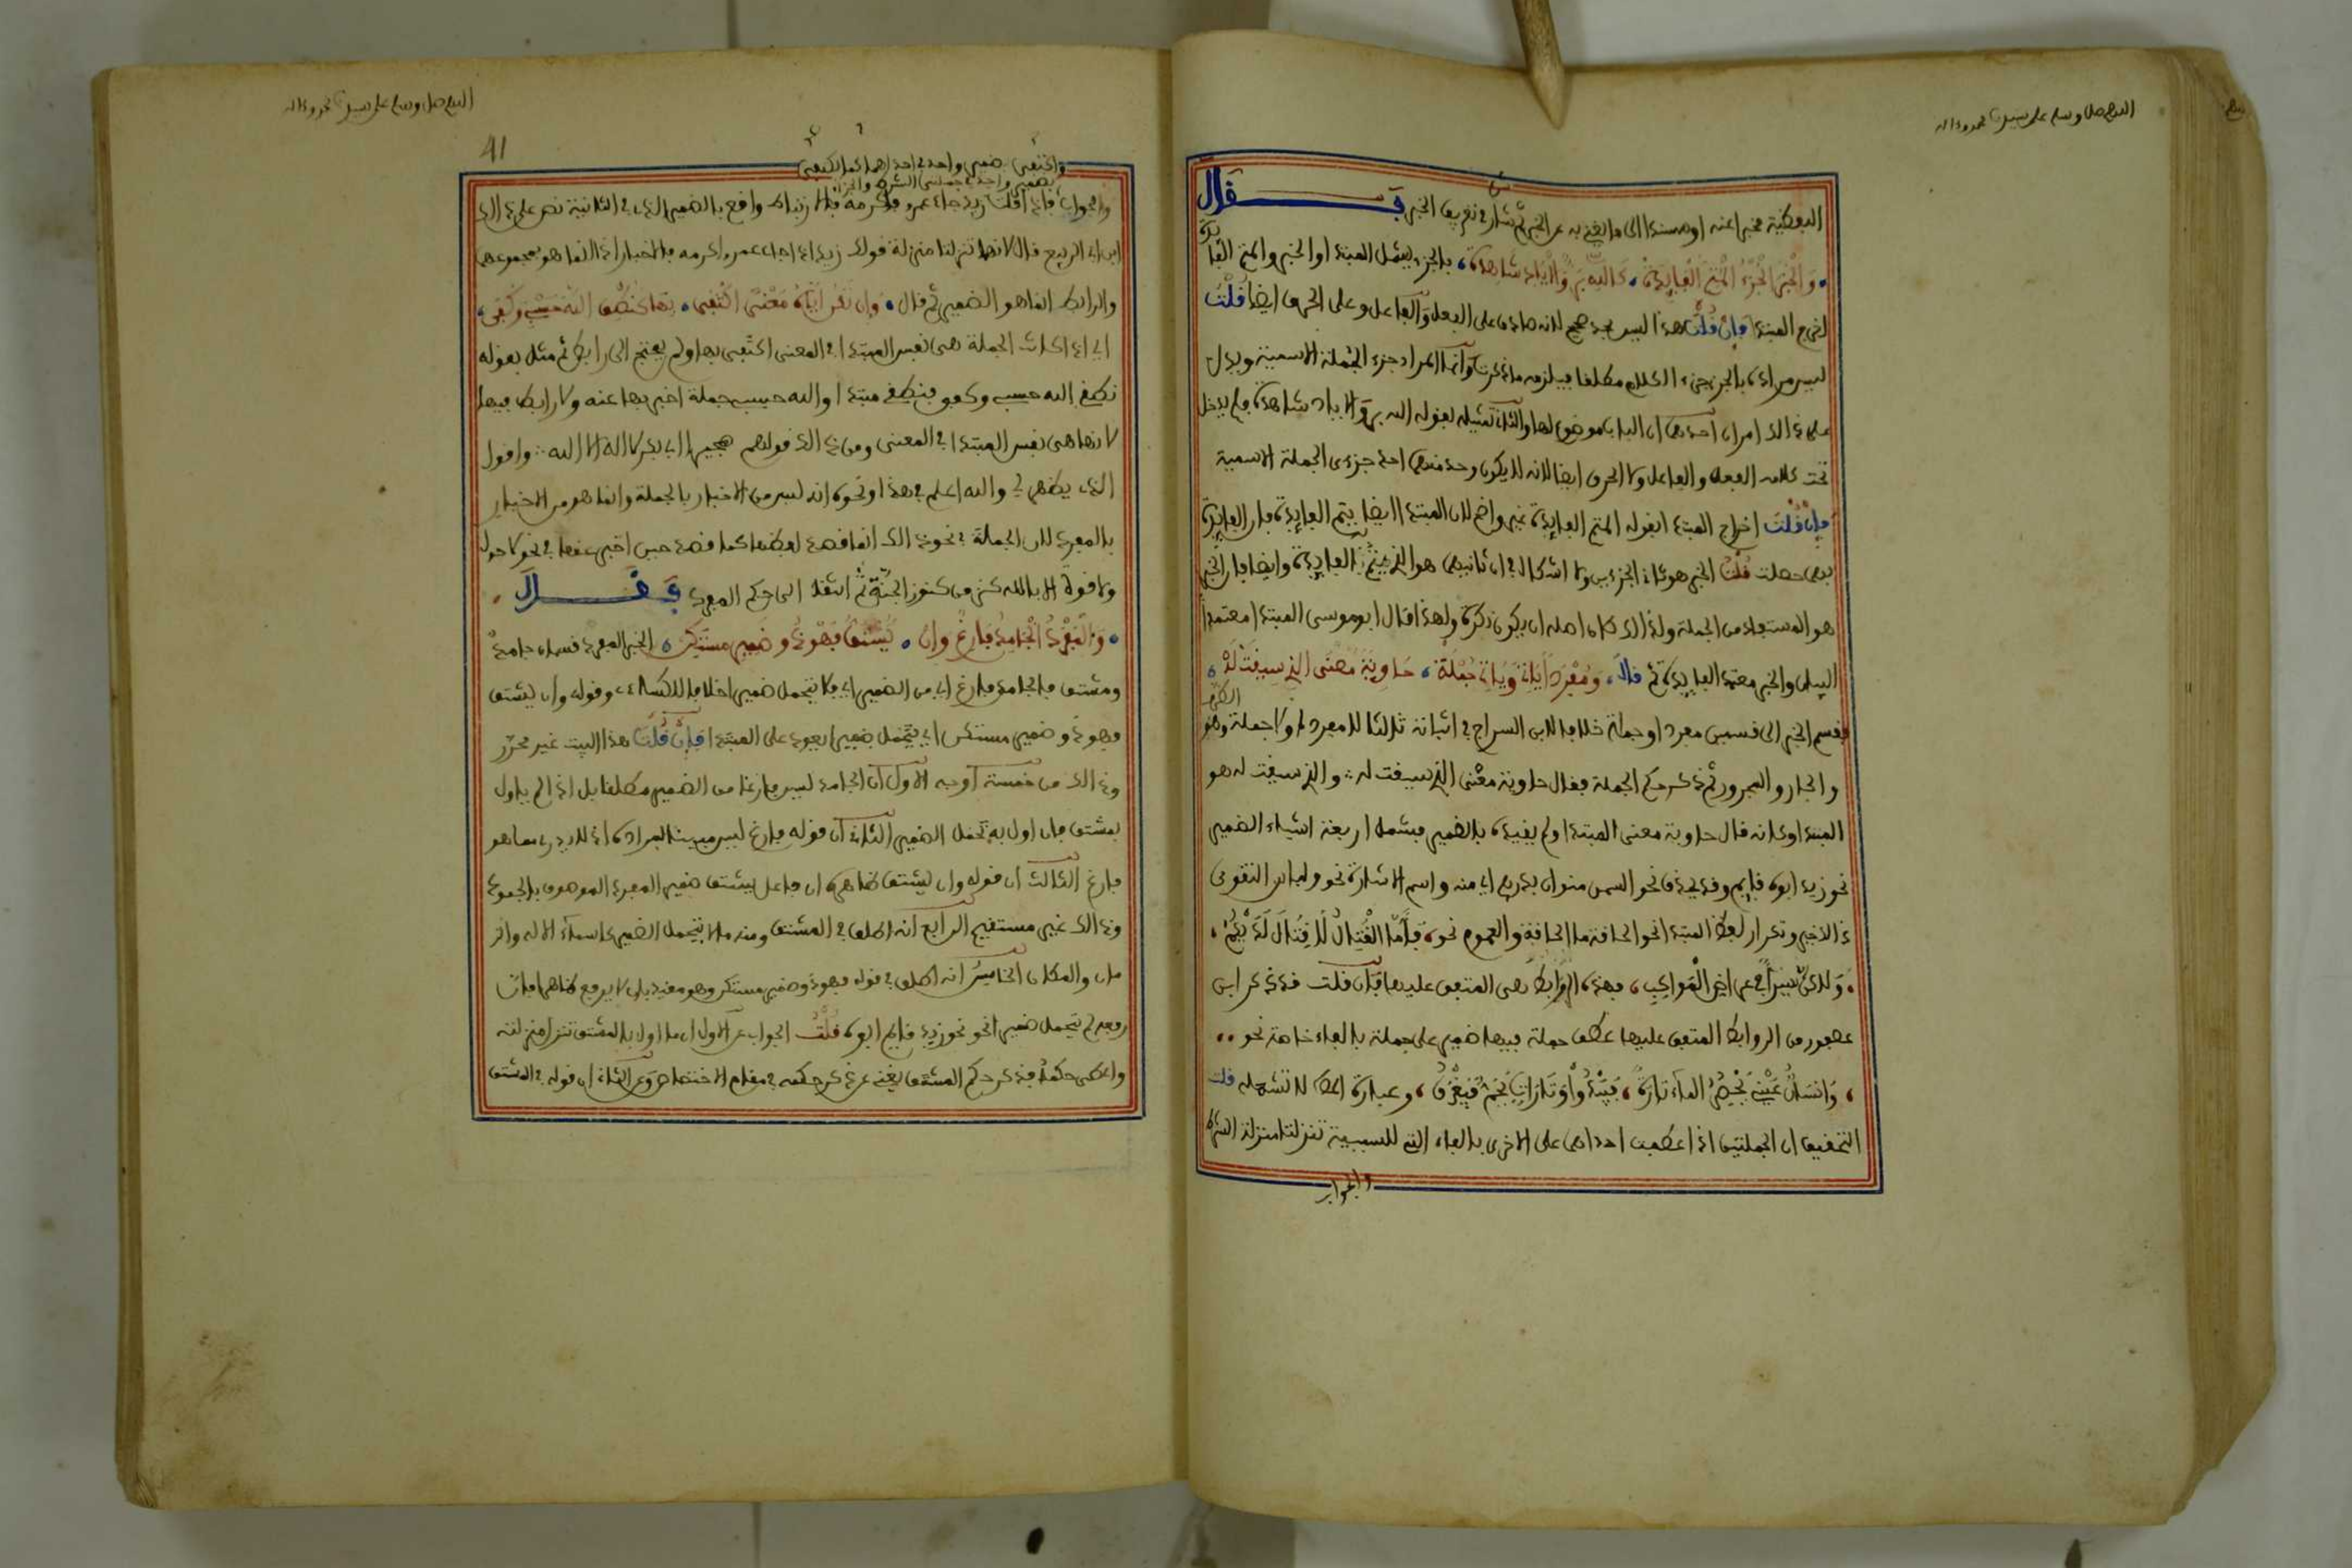 اللهم صل وسلم على سيدنا محمد وءاله
اللفظية مخبرا عنه او مسندا الى ما يغني به عن الخبر ثم شار في تعريف الخبر فقال
والخبر الجزء المتم الفايدة كالله بر والايادي شاهدة فالجزء يشمل المبتدا والخبر والمتم الفايدة
اخرج المبتدا فان قلت هذا ليس بحد صحيح لانه صادق على الفعل والفاعل وعلى الحرف ايضا قلت
ليس مراده بالجزء جزء الكلام مطلقا فيلزمه ما ذكرت وانما المراد جزء الجملة الاسمية ويدل
على ذالك امران احدهما ان الباب موضوع لها والثاني تمثيله بقوله الله بر والايادي شاهدة فلم يدخل
تحت كلامه الفعل والفاعل ولا الحرف ايضا لانه لا يكون وحد منهما احد جزءى الجملة الاسمية
فان قلت اخراج المبتدا بقوله المتم الفايدة غير واضح لان المبتدا ايضا يتم الفايدة فان الفايدة
بهما حصلت قلت الخبر هو ثاني الجزءين ولا اشكال في ان ثانيهما هو الذي يتم به الفايدة وايضا فان الخبر
هو المستفاد من الجملة ولذالك كان اصله ان يكون نكرة ولهذا قال ابو موسى المبتدا معتمد
البيان والخبر معتمد الفايدة ثم قال ومفردا ياتي وياتي جملة حاوية معنى الذي سيقت له
فقسم الخبر الى قسمين مفرد وجملة خلافا لابن السراج في اثباته ثالثا لا مفردا ولا جملة وهو الظرف
والجار والمجرور ثم ذكر حكم الجملة فقال حاوية معنى الذي سيقت له والذي سيقت له هو
المبتدا وكانه قال حاوية معنى المبتدا ولم يقيده بالضمير فيشمل اربعة اشياء الضمير
نحو زيد ابوه قايم وقد يحذف نحو السمن منوان بدرهم اي منه واسم الاشارة نحو ولباس التقوى
ذالك خير وتكرار لفظ المبتدا نحو الحاقة ما الحاقة والعموم نحو فأما القتال لا قتال لديكم
ولاكن سيرا في عراض المواكب فهذه الروابط هى المتفق عليها فان قلت قد ذكر ابن
عصفور من الروابط المتفق عليها عطف جملة فيها ضمير على جملة بالفاء خاصة نحو
وانسان عيني يحسر الماء تارة فيبدو وتارات يجم فيغرق وعبارة الناظم لا تشمله قلت
التحقيق ان الجملتين اذا عطفت احداهما على الاخرى بالفاء التي للسببية تنزلتا منزلة الشرط
والجواب
اللهم صل وسلم على سيدنا محمد وءاله
41
واكتفى بضمير واحد في احداهما كما اكتفي
بضمير واحد في جملتي الشرط والجزاء
والجواب فاذا قلت زيد جاء عمرو فاكرمه فالارتباط واقع بالضمير الذي في الثانية نص على ذالك
ابن ابي الربيع قال لانهما تنزلتا منزلة قولك زيد اذا جاء عمرو اكرمه فالاخبار اذا انما هو بمجموعهما
والرابط انما هو الضمير ثم قال وان تكن اياه معنى اكتفى بها كنطقي الله حسبي وكفى
اي اذا كانت الجملة هى نفس المبتدا في المعنى اكتفى بها ولم يحتج الى رابط ثم مثل بقوله
نطقي الله حسبي وكفى فنطقي مبتدا والله حسبي جملة اخبر بها عنه ولا رابط فيها
لانها هى نفس المبتدا في المعنى ومن ذالك قولهم هجيرا ابي بكر لا اله الا الله واقول
الذي يظهر لي والله اعلم في هذا ونحوه انه ليس من الاخبار بالجملة وانما هو من الاخبار
بالمفرد لان الجملة في نحو ذالك انما قصد لفظها كما قصد حين اخبر عنها في نحو لا حول
ولا قوة الا بالله كنز من كنوز الجنة ثم انتقل الى حكم المفرد فقال
والمفرد الجامد فارغ وان يشتق فهو ذو ضمير مستكن الخبر المفرد قسمان جامد
ومشتق فالجامد فارغ اي من الضمير اي فلا يتحمل ضميرا خلافا للكساءي وقوله وان يشتق
فهو ذو ضمير مستكن اي يتحمل ضميرا يعود على المبتدا فان قلت هذا البيت غير محرر
وذالك من خمسة أوجه الاول ان الجامد ليس فارغا من الضمير مطلقا بل اذا لم ياول
بمشتق فان اول به تحمل الضمير الثاني ان قوله فارغ ليس مبينا المراده اذ لا يدرى مما هو
فارغ الثالث ان قوله وان يشتق ظاهره ان فاعل يشتق ضمير المفرد الموصوف بالجمود
وذالك غير مستقيم الرابع انه اطلق في المشتق ومنه ما لا يتحمل الضمير كاسماء الالة والز
مان والمكان الخامس انه اطلق في قوله فهو ذو ضمير مستكن وهو مقيد بان لا يرفع ظاهرا فان
رفعه لم يتحمل ضميرا نحو زيد قايم ابوه قلت الجواب عن الاول ان ما اول بالمشتق تنزل منزلته
واعطي حكمه فذكر حكم المشتق يغني عن ذكر حكمه في مقام الاختصار وعن الثاني ان قوله في المشتق